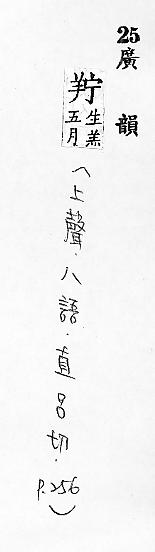 25廣韻
羜生羔五月
(上聲.八語.直呂切.P.256)